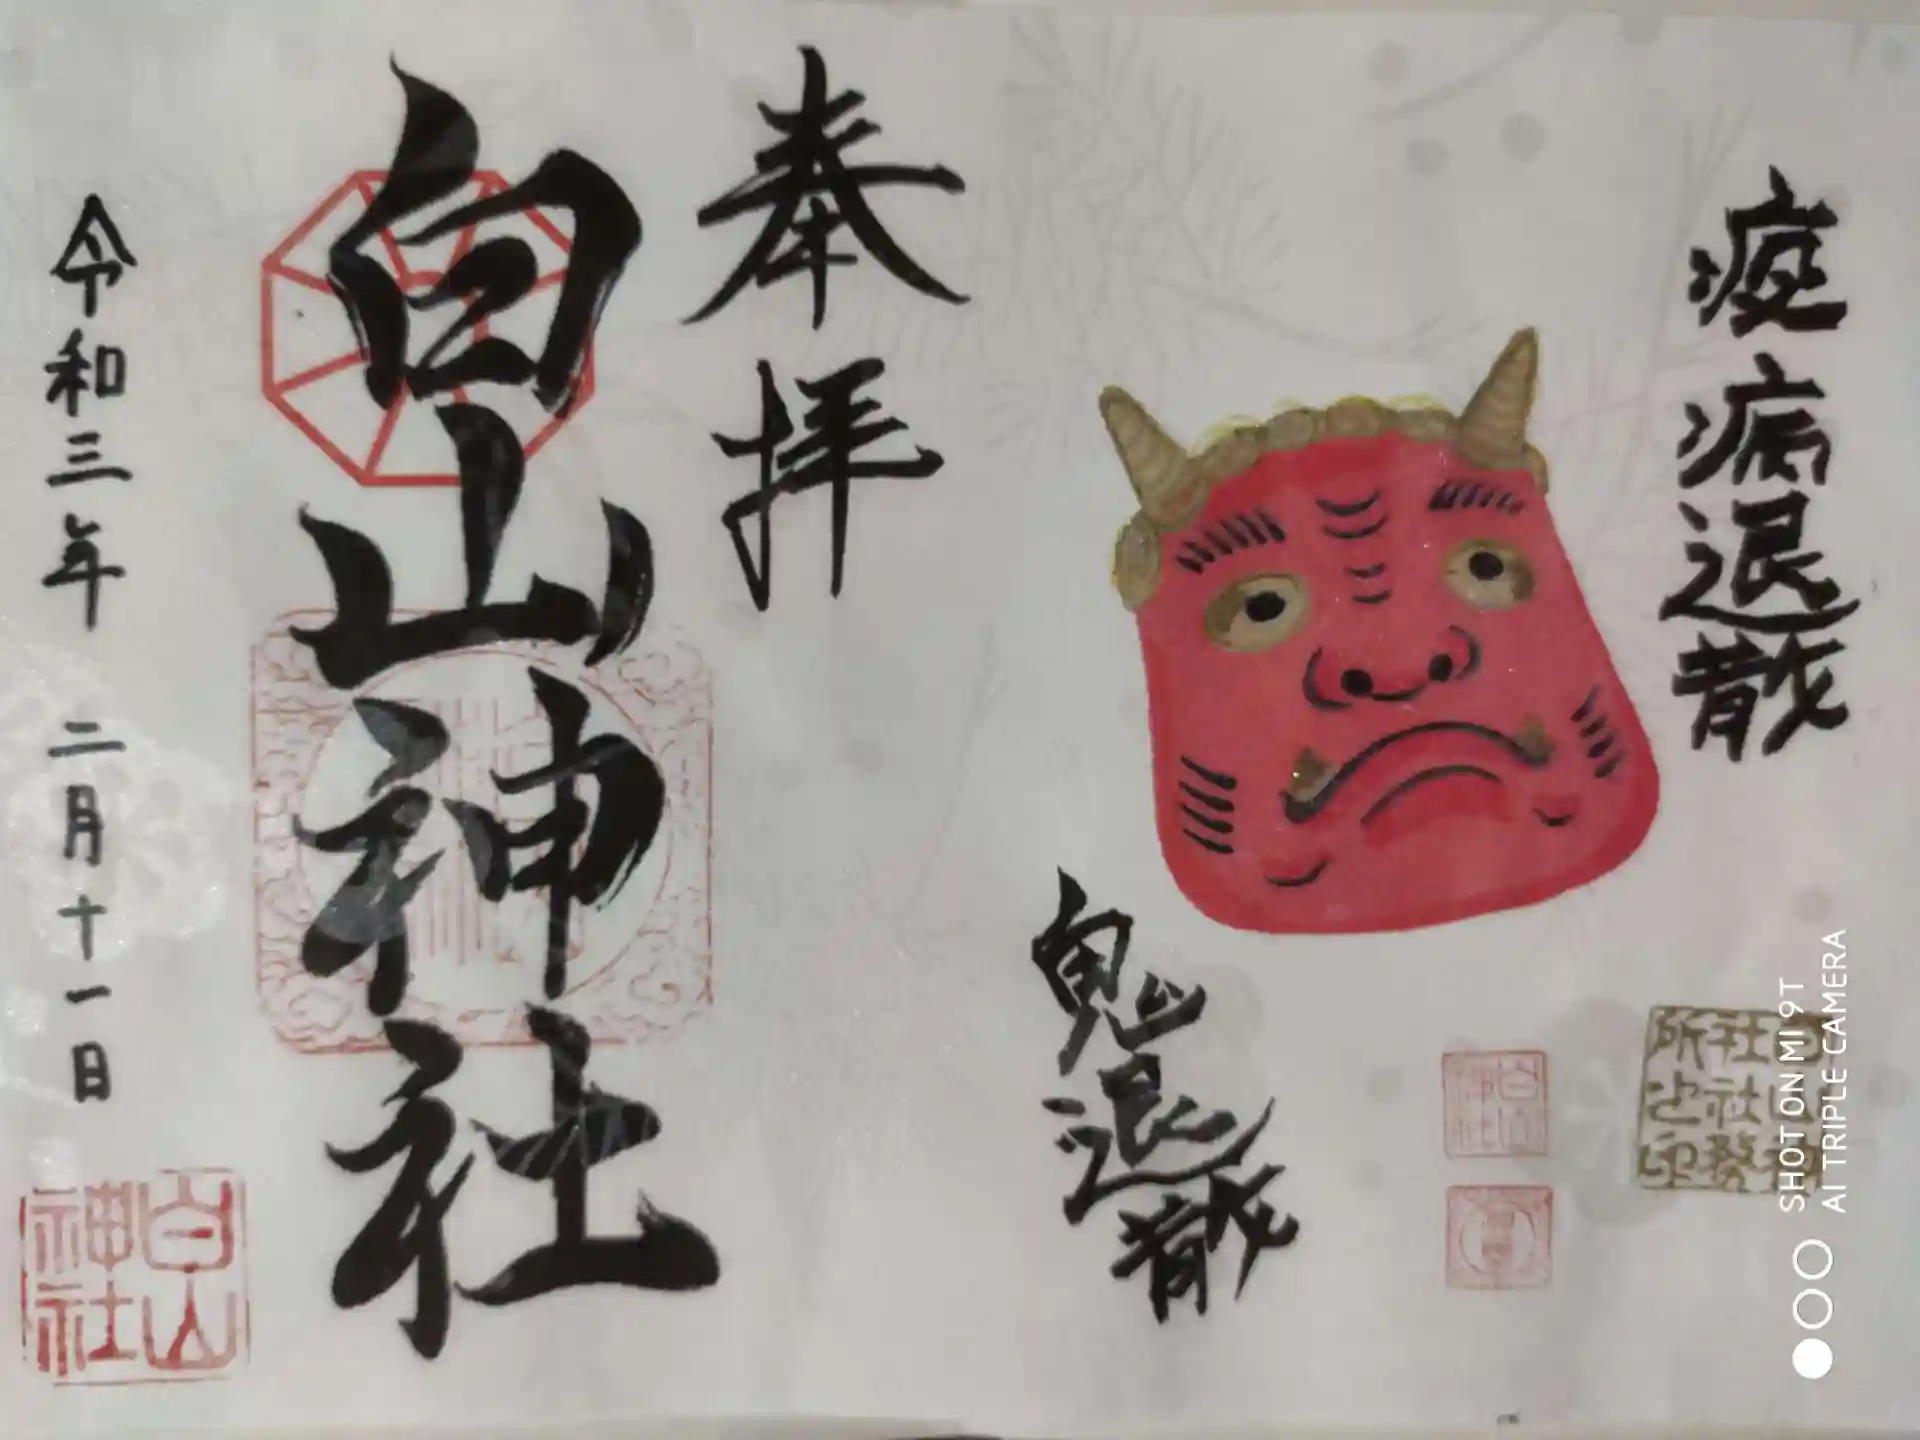 疫病退散
鬼退散
奉拝
白山神社
令和三年 二月十一日
白山
神社
白山神
社社務
所之印
SHOT ON MI 9T
AI TRIPLE CAMERA